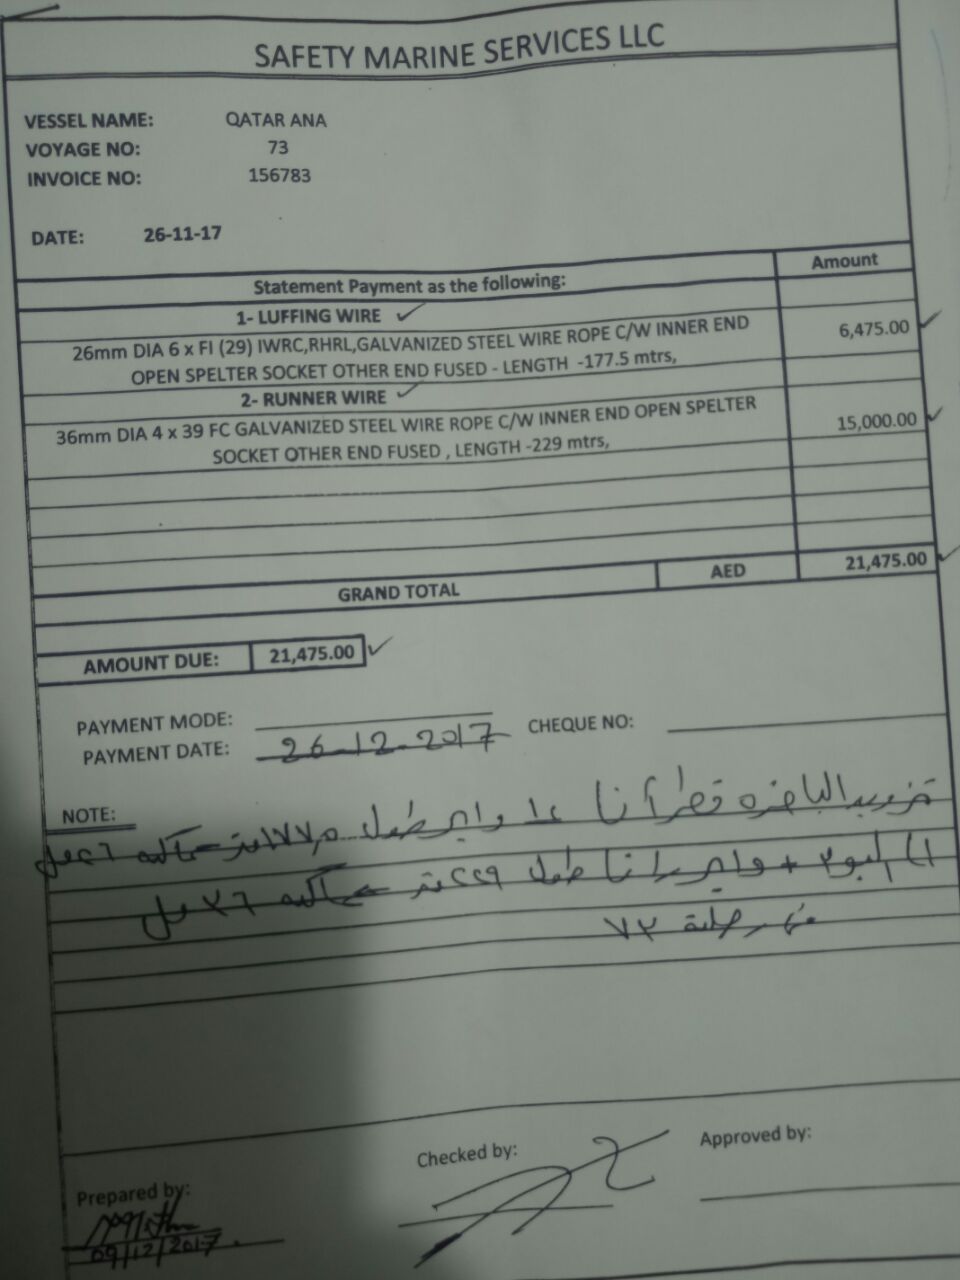 SAFETY MARINE SERVICES LLC
VESSEL NAME: QATAR ANA
VOYAGE NO: 73
INVOICE NO: 156783
DATE: 26-11-17
Statement Payment as the following: Amount
1- LUFFING WIRE
26mm DIA 6 x FI (29) IWRC,RHRL,GALVANIZED STEEL WIRE ROPE C/W INNER END 6,475.00
OPEN SPELTER SOCKET OTHER END FUSED - LENGTH -177.5 mtrs,
2- RUNNER WIRE
36mm DIA 4 x 39 FC GALVANIZED STEEL WIRE ROPE C/W INNER END OPEN SPELTER 15,000.00
SOCKET OTHER END FUSED , LENGTH -229 mtrs,
GRAND TOTAL AED 21,475.00
AMOUNT DUE: 21,475.00
PAYMENT MODE:
PAYMENT DATE: 26-12-2017 CHEQUE NO:
NOTE:
الباخرة قطر آنا واير طول
+ واير طول ٢٢٩ متر
رحلة ٧٣
Checked by: Approved by:
Prepared by:
09/12/2017